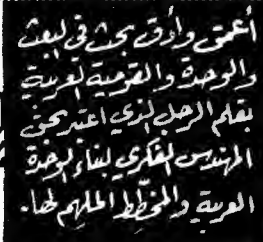 أعمق وأدق بحث في البعث
والوحدة والقومية العربية
بقلم الرجل الذي اعتبر بحق
المهندس الفكري لبناء الوحدة
العربية والمخطّط الملهم لها.